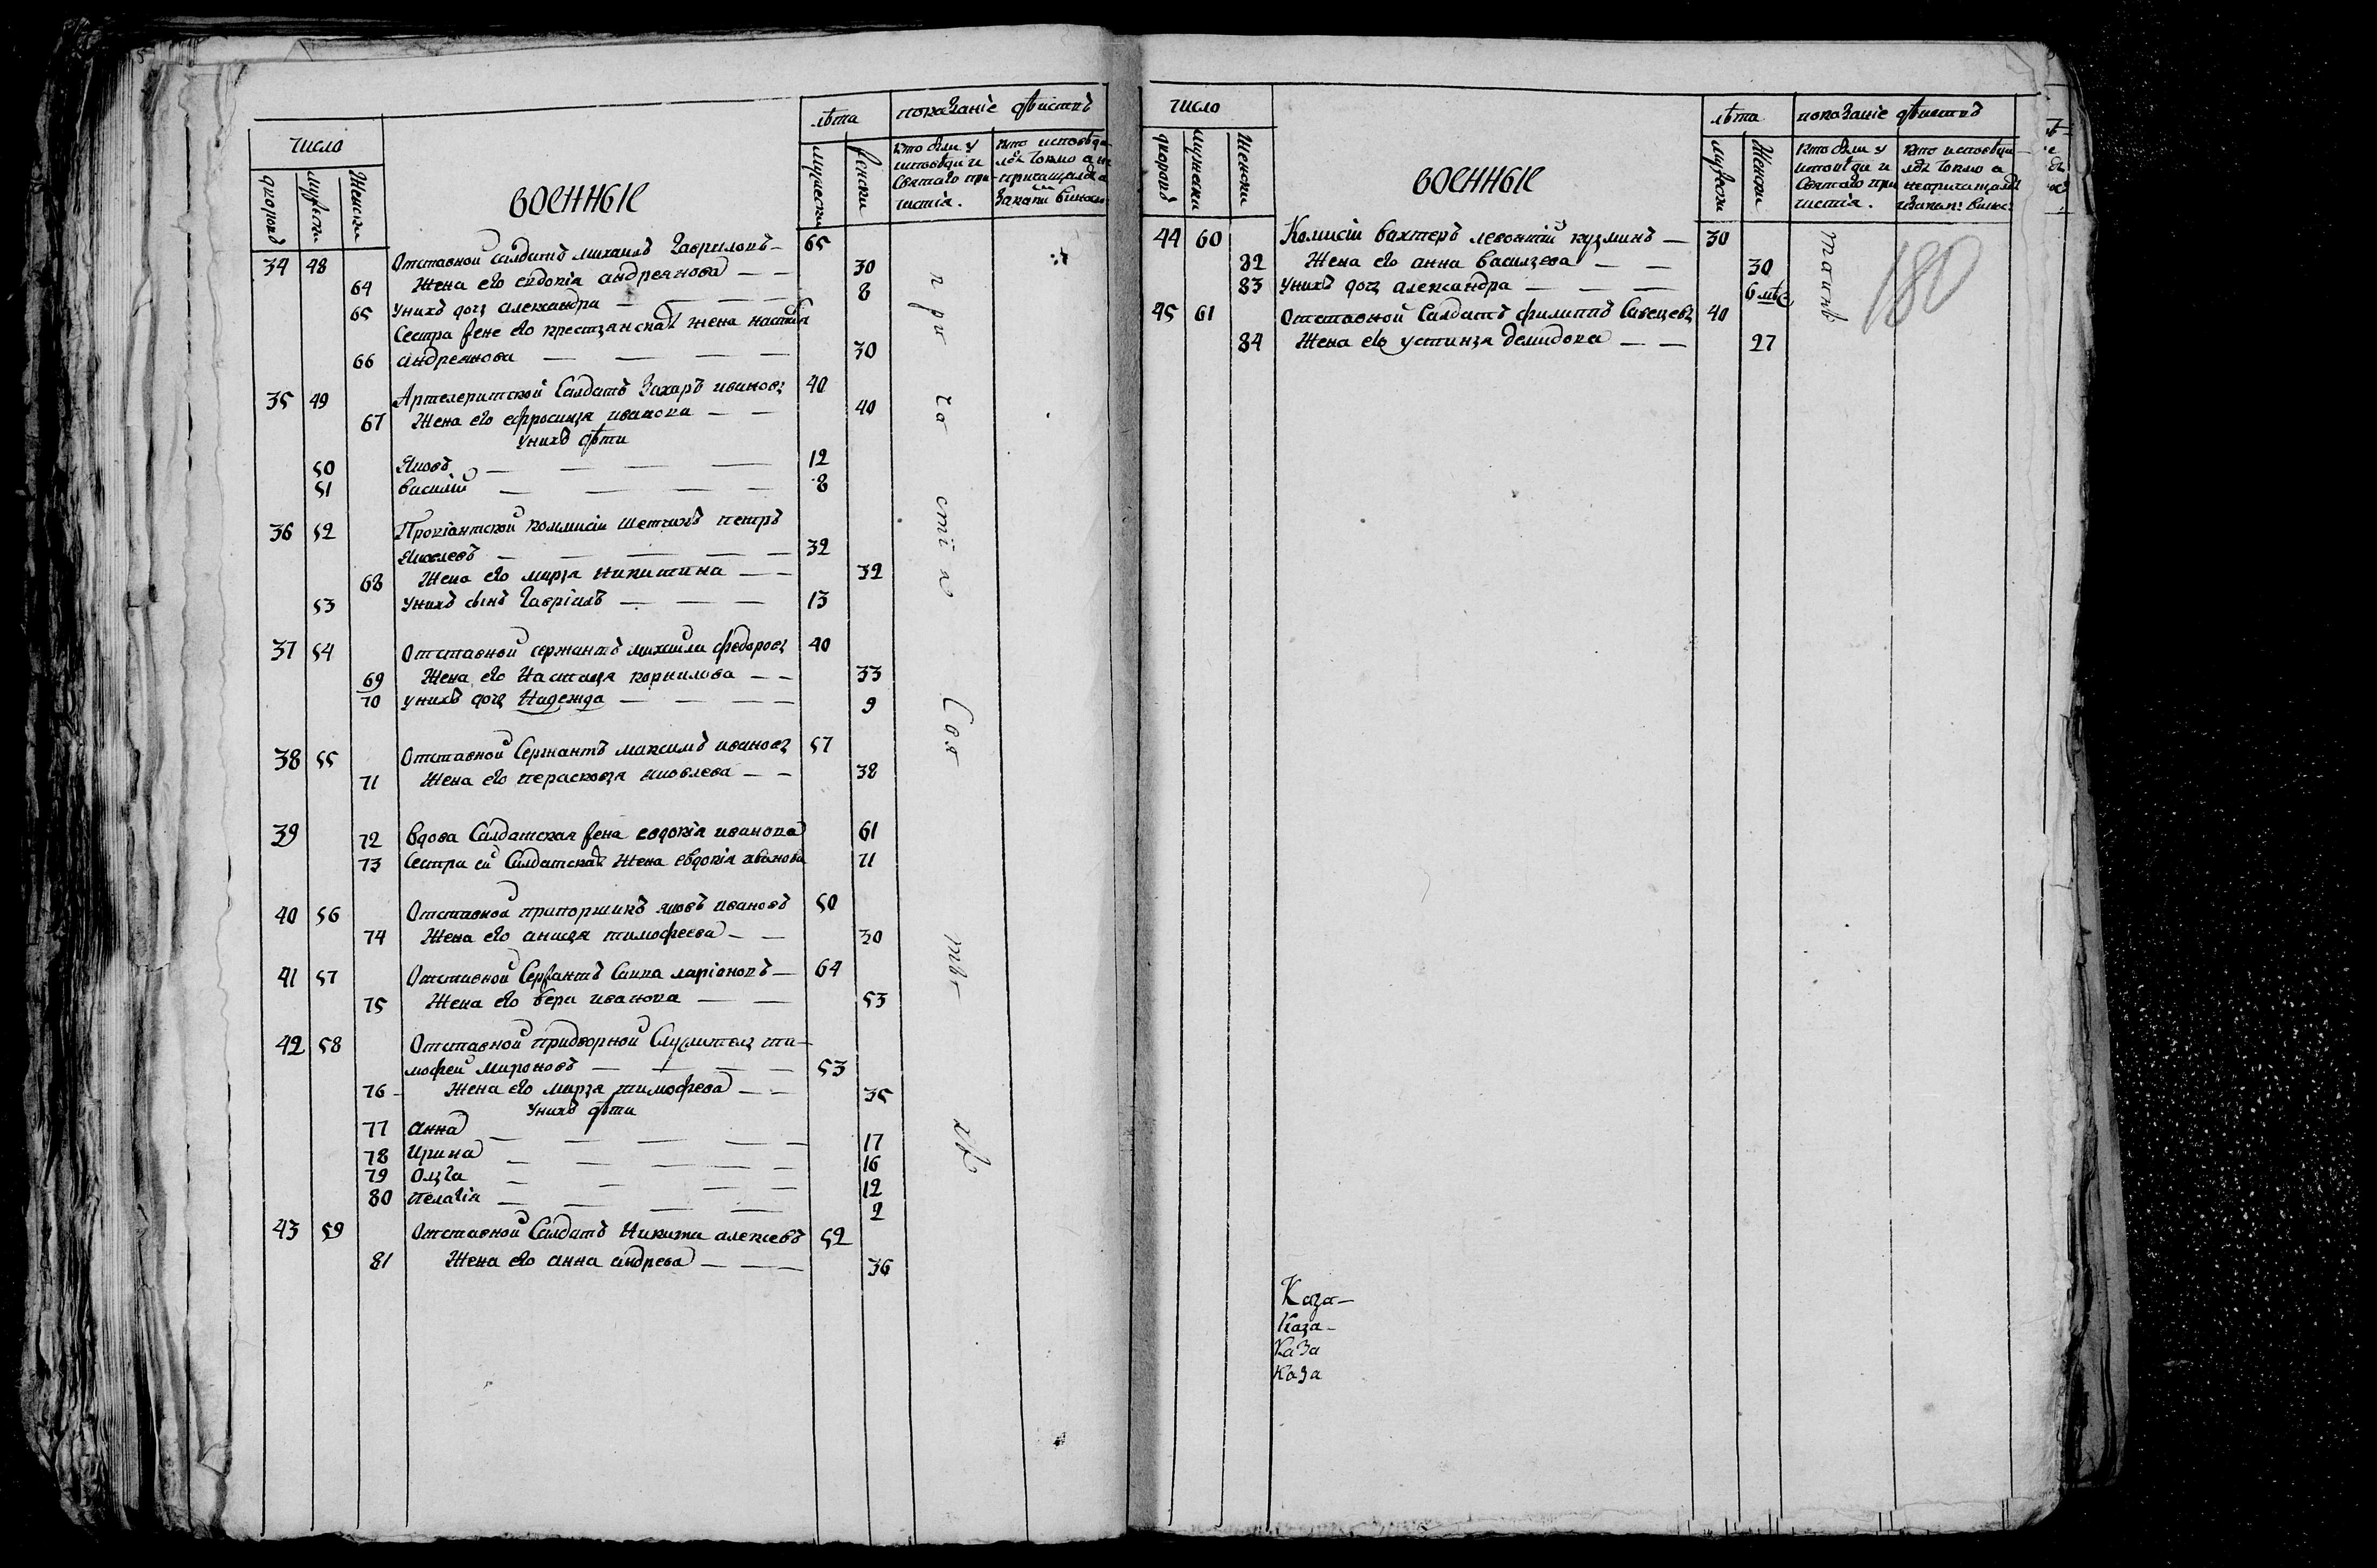 число
дворовъ
мужески
женски
ВОЕННЫЕ
лѣта
мужески
женски
показаніе дѣиствъ
кто были у исповѣди и святаго причистія.
34 48 Отставной салдатъ михаилъ Гавриловъ 65
64 Жена его евдокія андреянова 30
65 у нихъ дочь александра 8
Сестра жене его крестьянская жена настасья
66 андреянова 30
35 49 Артелеритской Салдатъ Захаръ ивановъ 40
67 Жена его ефросинья иванова 40
у нихъ дѣти
50 Яковъ 12
51 василій 8
36 52 Провіантской коммисіи щетчикъ петръ
Яковлевъ 32
68 Жена его марья Никитина 32
53 у нихъ сынъ Гавріилъ 13
37 54 Отставной сержантъ михаила федоровъ 40
69 Жена его Настасья корнилова 33
70 у нихъ дочь Надежда 9
38 55 Отставной Сержантъ максимъ ивановъ 57
71 Жена его перасковья яковлева 38
39 72 вдова Салдатская жена евдокія иванова 61
73 Сестра ей Салдатская Жена евдокія иванова 71
40 56 Отставной прапорщикъ яковъ ивановъ 50
74 Жена его анисья тимофеева 30
41 57 Отставной Сержантъ Савва ларіоновъ 64
75 Жена его вера иванова 53
42 58 Отставной придворной Служитель ти-
мофей мироновъ 53
76 Жена его марья тимофева 35
у нихъ дѣти
77 анна 17
78 Ирина 16
79 Ольга 12
80 пелагія 2
43 59 Отставной Салдатъ Никита алексевъ 52
81 Жена его анна андрева 36
при ча стіи Свя
число
дворовъ
мужески
женски
ВОЕННЫЕ
лѣта
мужески
женски
показаніе дѣиствъ
кто были у исповѣди и святаго при чистія.
44 60 Комисіи вахтеръ левонтій кузминъ 30
82 Жена его анна василева 30
83 у нихъ дочь александра 6 мѣс
45 61 Отставной Салдатъ филиппъ Савельевъ 40
84 Жена его устинья демидова 27
180
Каза-
Каза-
КаЗа
каза